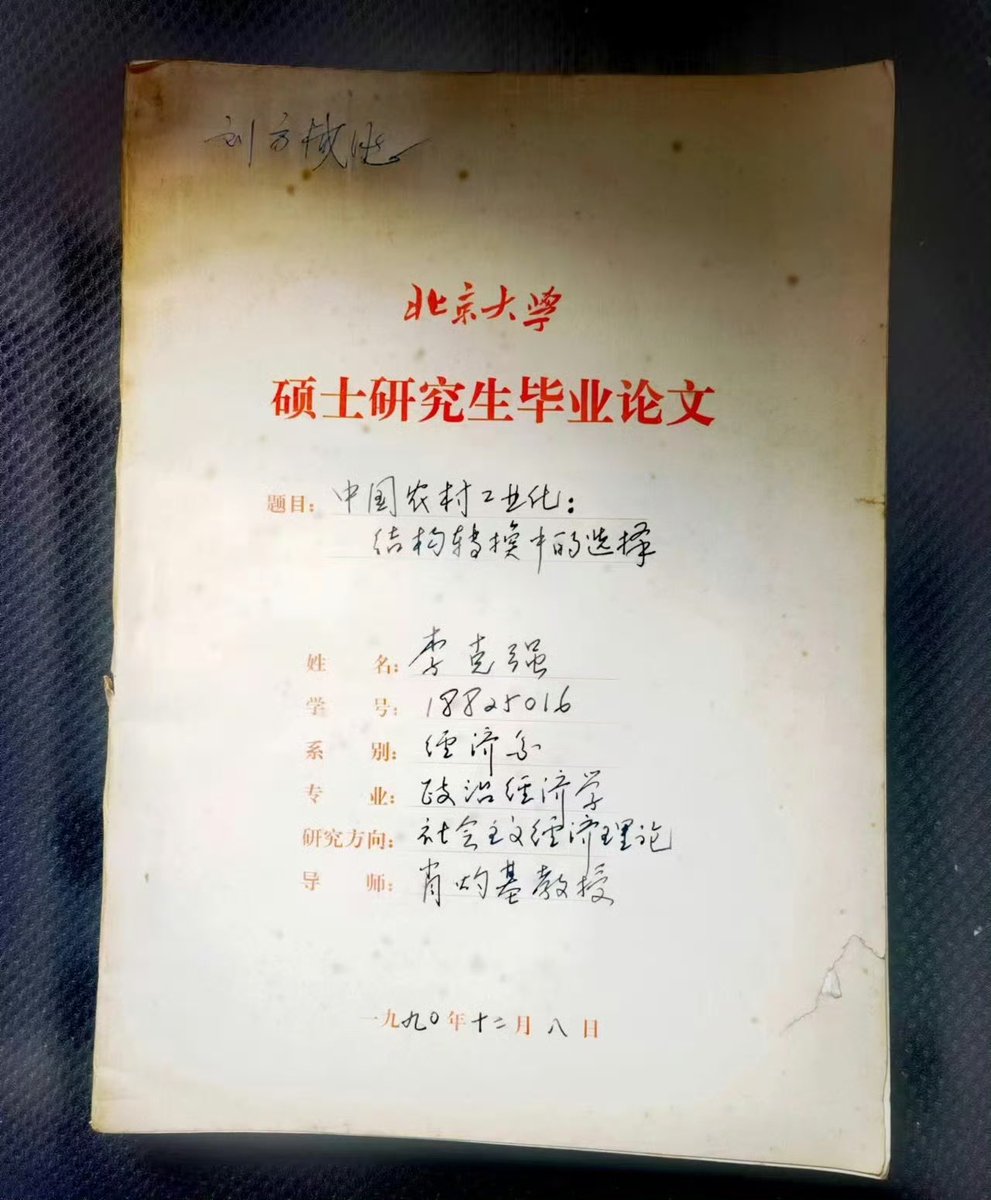 北京大学
硕士研究生毕业论文
题目：中国农村工业化：
结构转换中的选择
姓名：李克强
学号：18825016
系别：经济系
专业：政治经济学
研究方向：社会主义经济理论
导师：肖灼基教授
一九九0年十二月八日